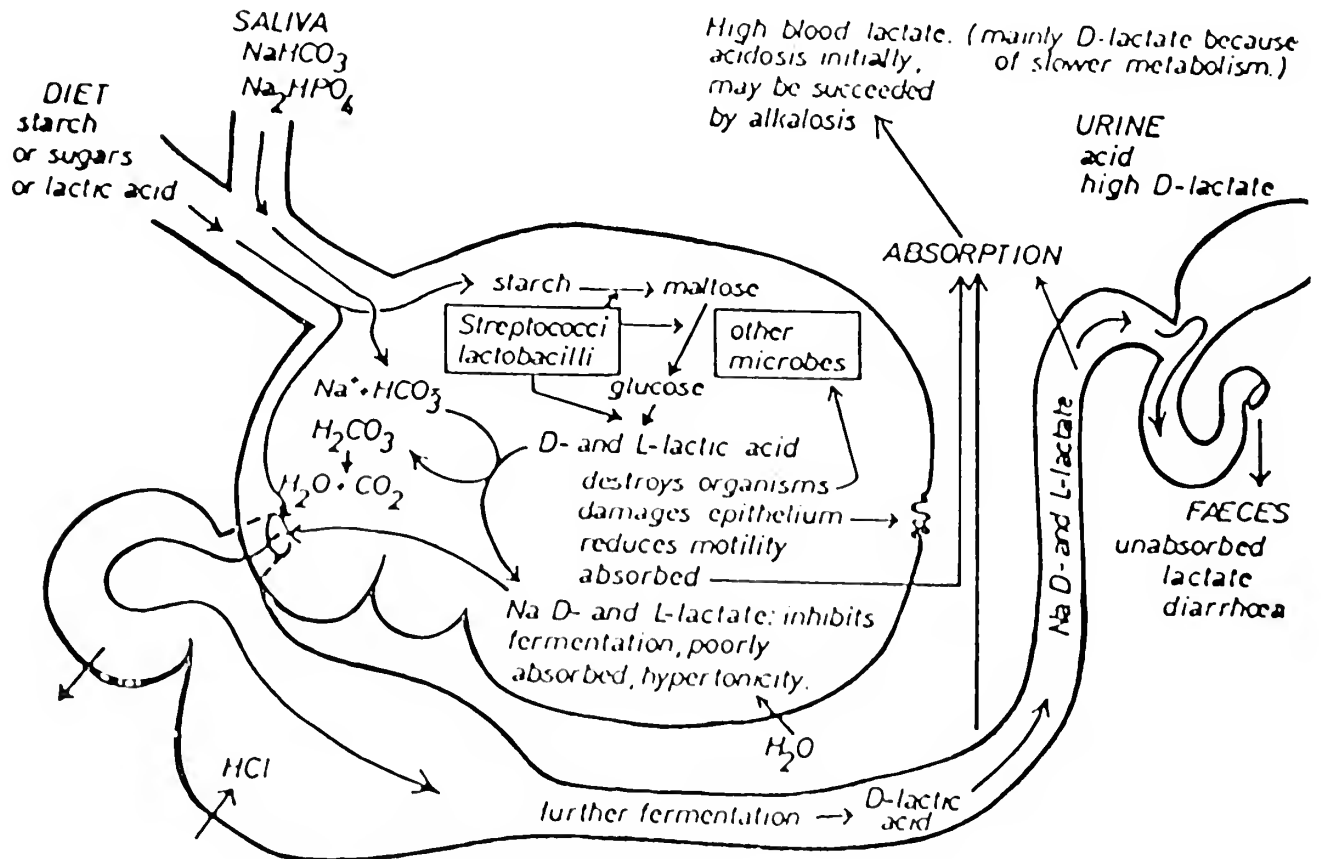 SALIVA
NaHCO3
Na2HPO4
DIET
starch
or sugars
or lactic acid
High blood lactate. (mainly D-lactate because
acidosis initially, of slower metabolism.)
may be succeeded
by alkalosis
URINE
acid
high D-lactate
ABSORPTION
starch → maltose
Streptococci
lactobacilli
other
microbes
glucose
Na+ + HCO3
H2CO3
H2O + CO2
D- and L-lactic acid
destroys organisms
damages epithelium
reduces motility
absorbed
Na D- and L-lactate: inhibits
fermentation, poorly
absorbed, hypertonicity.
H2O
Na D- and L-lactate
FAECES
unabsorbed
lactate
diarrhoea
HCl
further fermentation → D-lactic
acid